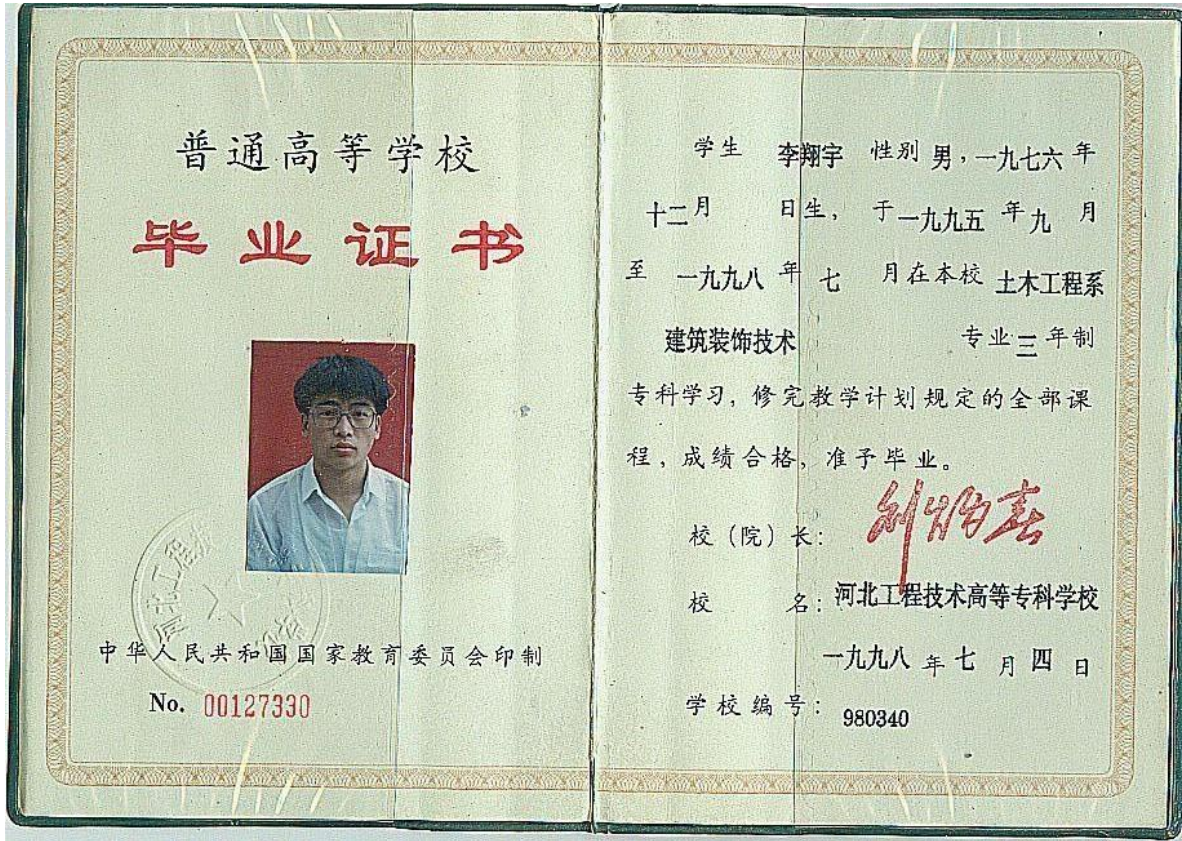 普通高等学校
毕业证书
中华人民共和国国家教育委员会印制
No. 00127330
学生 李翔宇 性别 男，一九七六年
十二月 日生，于一九九五年九月
至一九九八年七月在本校 土木工程系
建筑装饰技术 专业三年制
专科学习，修完教学计划规定的全部课
程，成绩合格，准予毕业。
校（院）长：
校名：河北工程技术高等专科学校
一九九八年七月四日
学校编号：980340